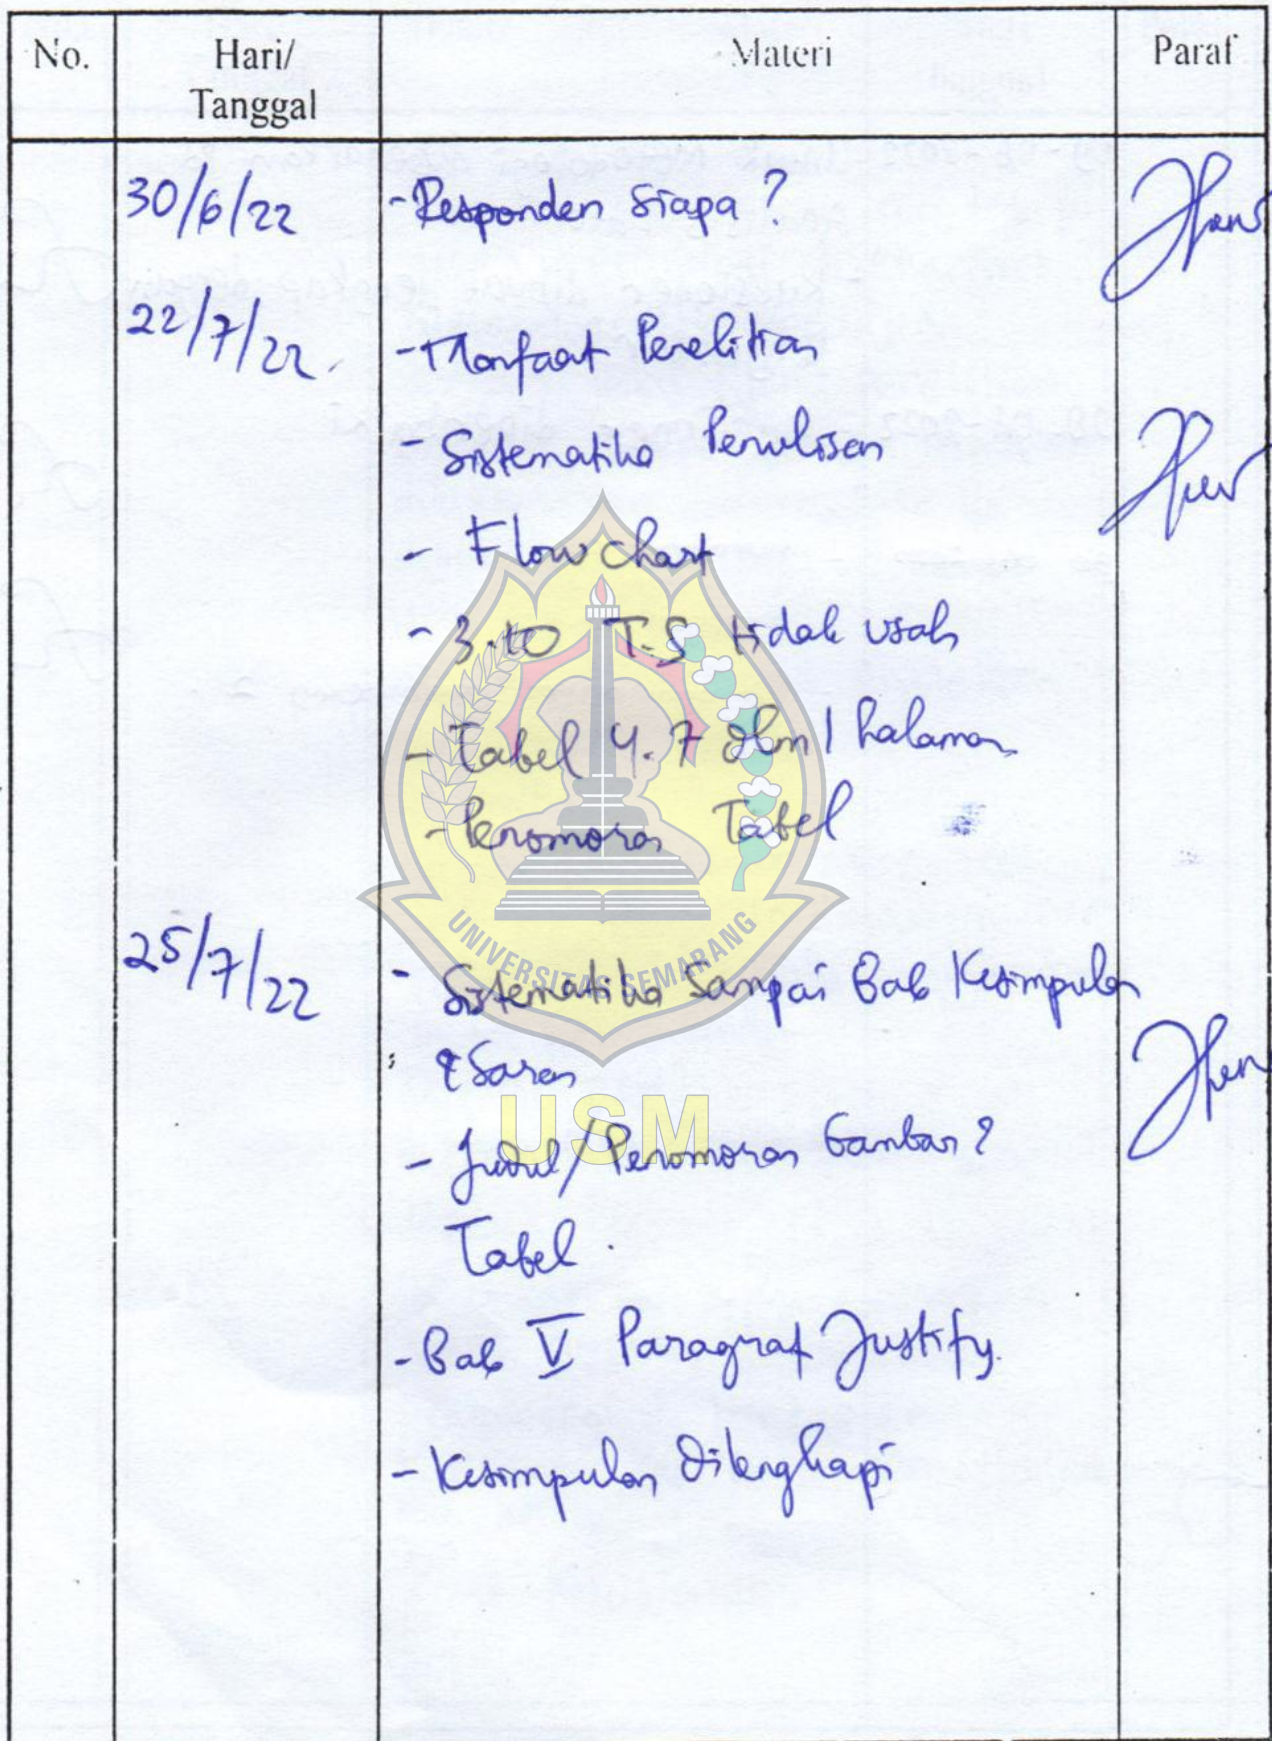 No. Hari/ Tanggal Materi Paraf
30/6/22 - Responden Siapa ?
22/7/22. - Manfaat Penelitian
- Sistematika Penulisan
- Flow chart
- 3.10 T.S tidak usah
- Tabel 4.7 dlm 1 halaman
- Penomoran Tabel
UNIVERSITAS SEMARANG
25/7/22 - Sistematika Sampai Bab Kesimpulan
& Saran
USM
- Judul/Penomoran Gambar ?
Tabel.
- Bab V Paragraf Justify.
- Kesimpulan dilengkapi